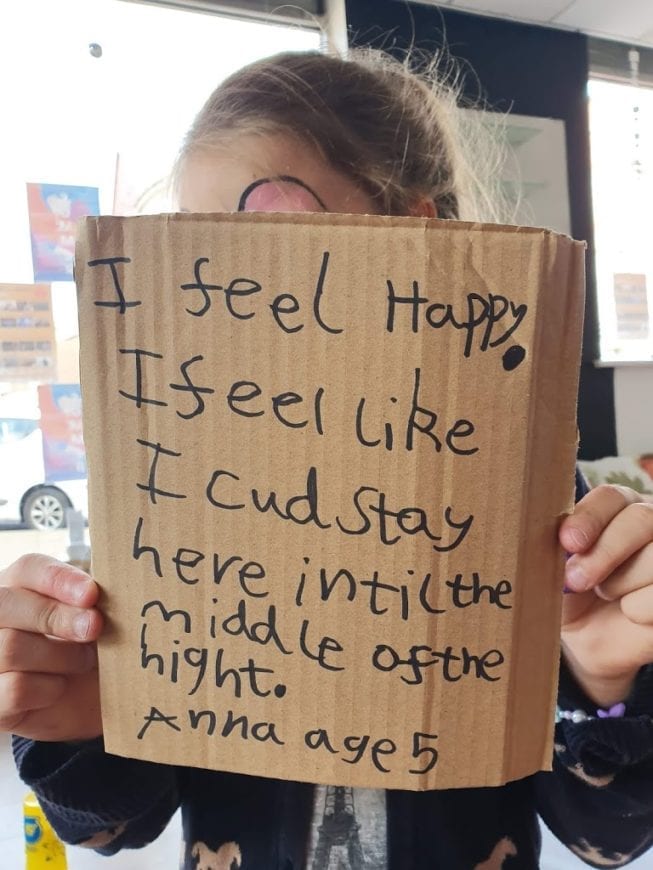 I feel Happy.
I feel like
I cud stay
here intil the
middle of the
night.
Anna age 5